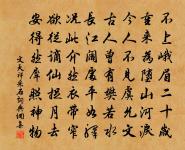 不上峨眉二十歲
重來為墮山河淚
今人不見虞允文
古人曾有樊若水
長江闊處平如驛
況此介然衣帶窄
欲從謫仙捉月去
安得然犀照神物
文天祥采石詞典網